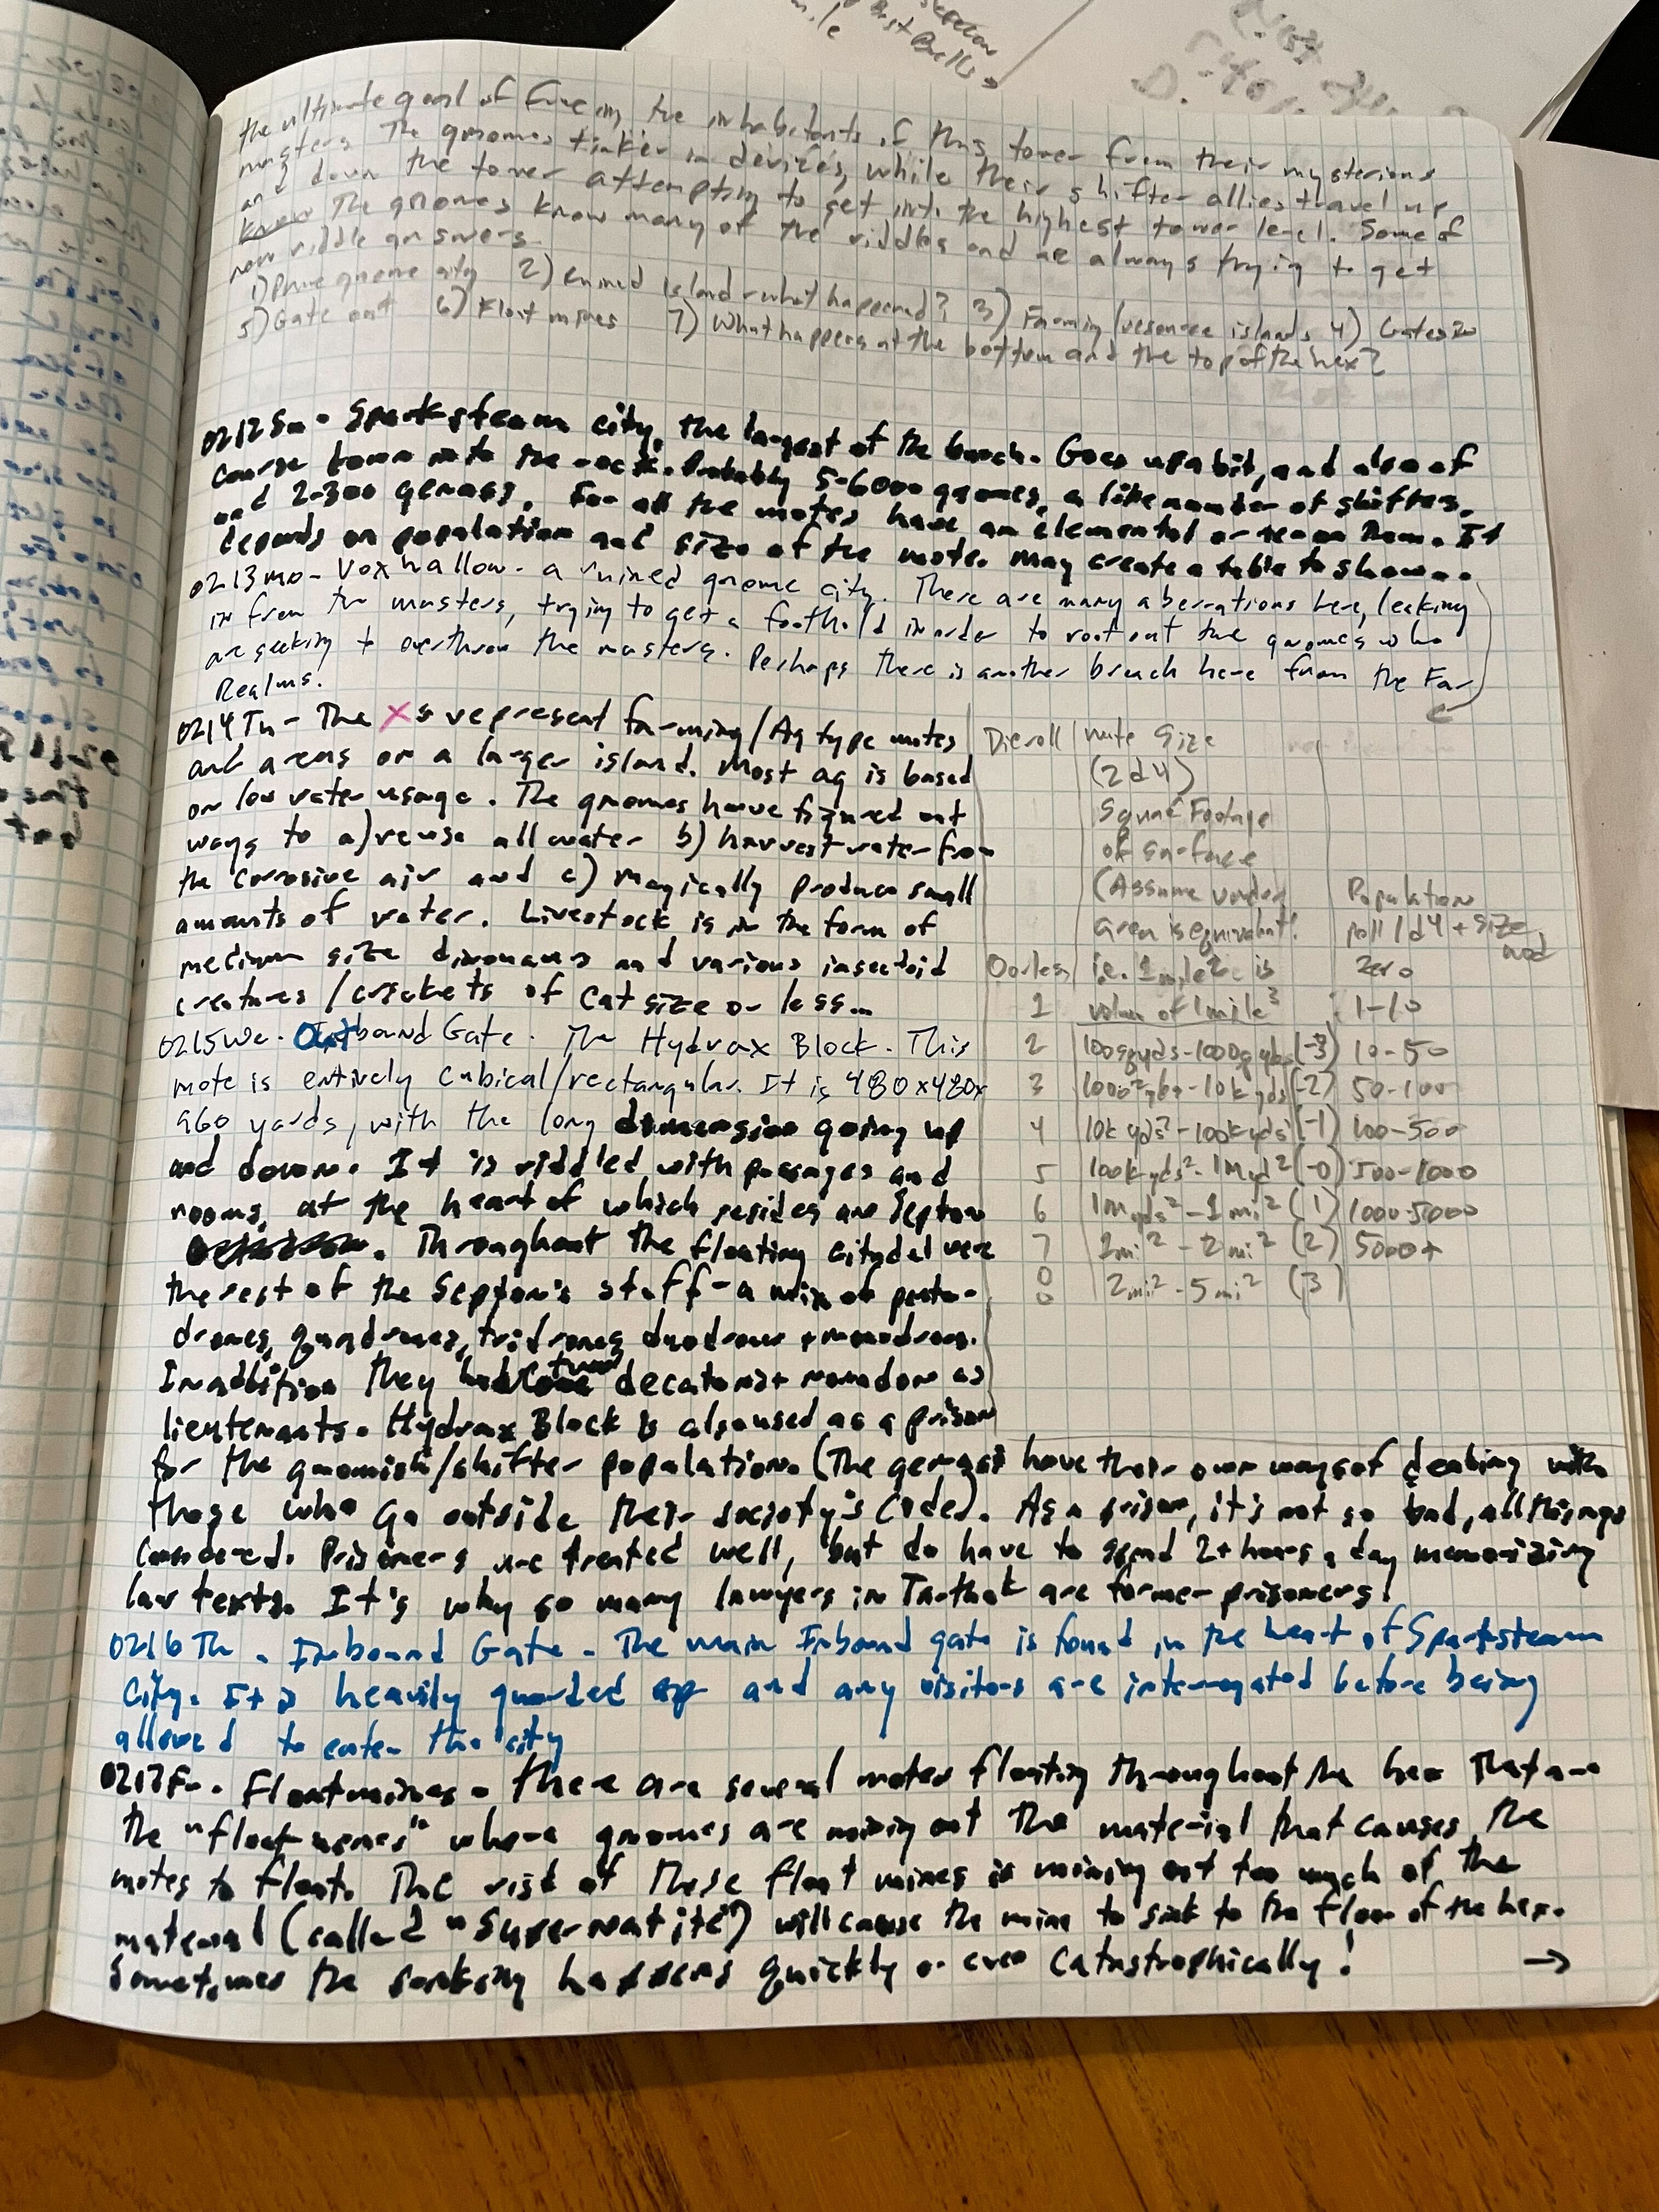 the ultimate goal of freeing the inhabitants of this tower from their mysterious
masters. The gnomes tinker in devices, while their shifter allies travel up
and down the tower attempting to get into the highest tower level. Some of
know The gnomes know many of the riddles and are always trying to get
new riddle answers.
1) Prime gnome city 2) Ruined island - what happened? 3) Farming/resource islands 4) Gates in
5) Gate out 6) Float mines 7) What happens at the bottom and the top of the hex?
0212Su - Sparksteam city, the largest of the bunch. Goes up a bit, and also of
course down into the rock. Probably 5-6000 gnomes, a like number of shifters,
and 2-300 genasi. For all the motes have an elemental or te on them. It
depends on population and size of the mote. May create a table to show..
0213Mo - Vox hallow - a ruined gnome city. There are many aberrations here, leaking
in from the masters, trying to get a foothold in order to root out the gnomes who
are seeking to overthrow the masters. Perhaps there is another breach here from the Far
Realms.
0214Tu - The Xs represent farming/Ag type motes
and areas on a larger island. Most ag is based
on low water usage. The gnomes have figured out
ways to a) reuse all water b) harvest water from
the corrosive air and c) magically produce small
amounts of water. Livestock is in the form of
medium size dinosaurs and various insectoid
creatures/crickets of cat size or less...
0215We - Outbound Gate. The Hydrax Block. This
mote is entirely cubical/rectangular. It is 480x480x
960 yards, with the long dimension going up
and down. It is riddled with passages and
rooms, at the heart of which resides one Septon
. Throughout the floating citydel were
the rest of the Septon's staff - a mix of penta-
drones, quadrones, tridrones duodrones + monodrones.
In addition they had two decatons + nonadons as
lieutenants. Hydrax Block is also used as a prison
for the gnomish/shifter population. (The genasi have their own ways of dealing with
those who go outside their society's code). As a prison, it's not so bad, all things
considered. Prisoners are treated well, but do have to spend 2+ hours a day memorizing
law texts. It's why so many lawyers in Tarthat are former prisoners!
Die roll | mote size
(2d4)
Square Footage
of surface
(Assume under | Population
area is equivalent! | roll 1d4 + size mod
0 or less | i.e. 1 mile² is | Zero
1 | volum of 1 mile³ | 1-10
2 | 100sqyds - 1000sqyds (-3) | 10-50
3 | 1000²yds - 10k yds (-2) | 50-100
4 | 10k yds² - 100k yds² (-1) | 100-500
5 | 100k yds² - 1M yd² (-0) | 500-1000
6 | 1M yds² - 1 mi² (1) | 1000-5000
7 | 1mi² - 2mi² (2) | 5000+
8 | 2mi² - 5mi² (3)
0216Th - Inbound Gate - The main Inbound gate is found in the heart of Sparksteam
City. It is heavily guarded and any visitors are interrogated before being
allowed to enter the city
0217Fr. Floatmines - there are several motes floating throughout the hex that are
the "float mines" where gnomes are mining out the material that causes the
motes to float. The risk of these float mines is mining out too much of the
material (called "Supernatite") will cause the mine to sink to the floor of the hex.
Sometimes the sinking happens quickly or even catastrophically! →